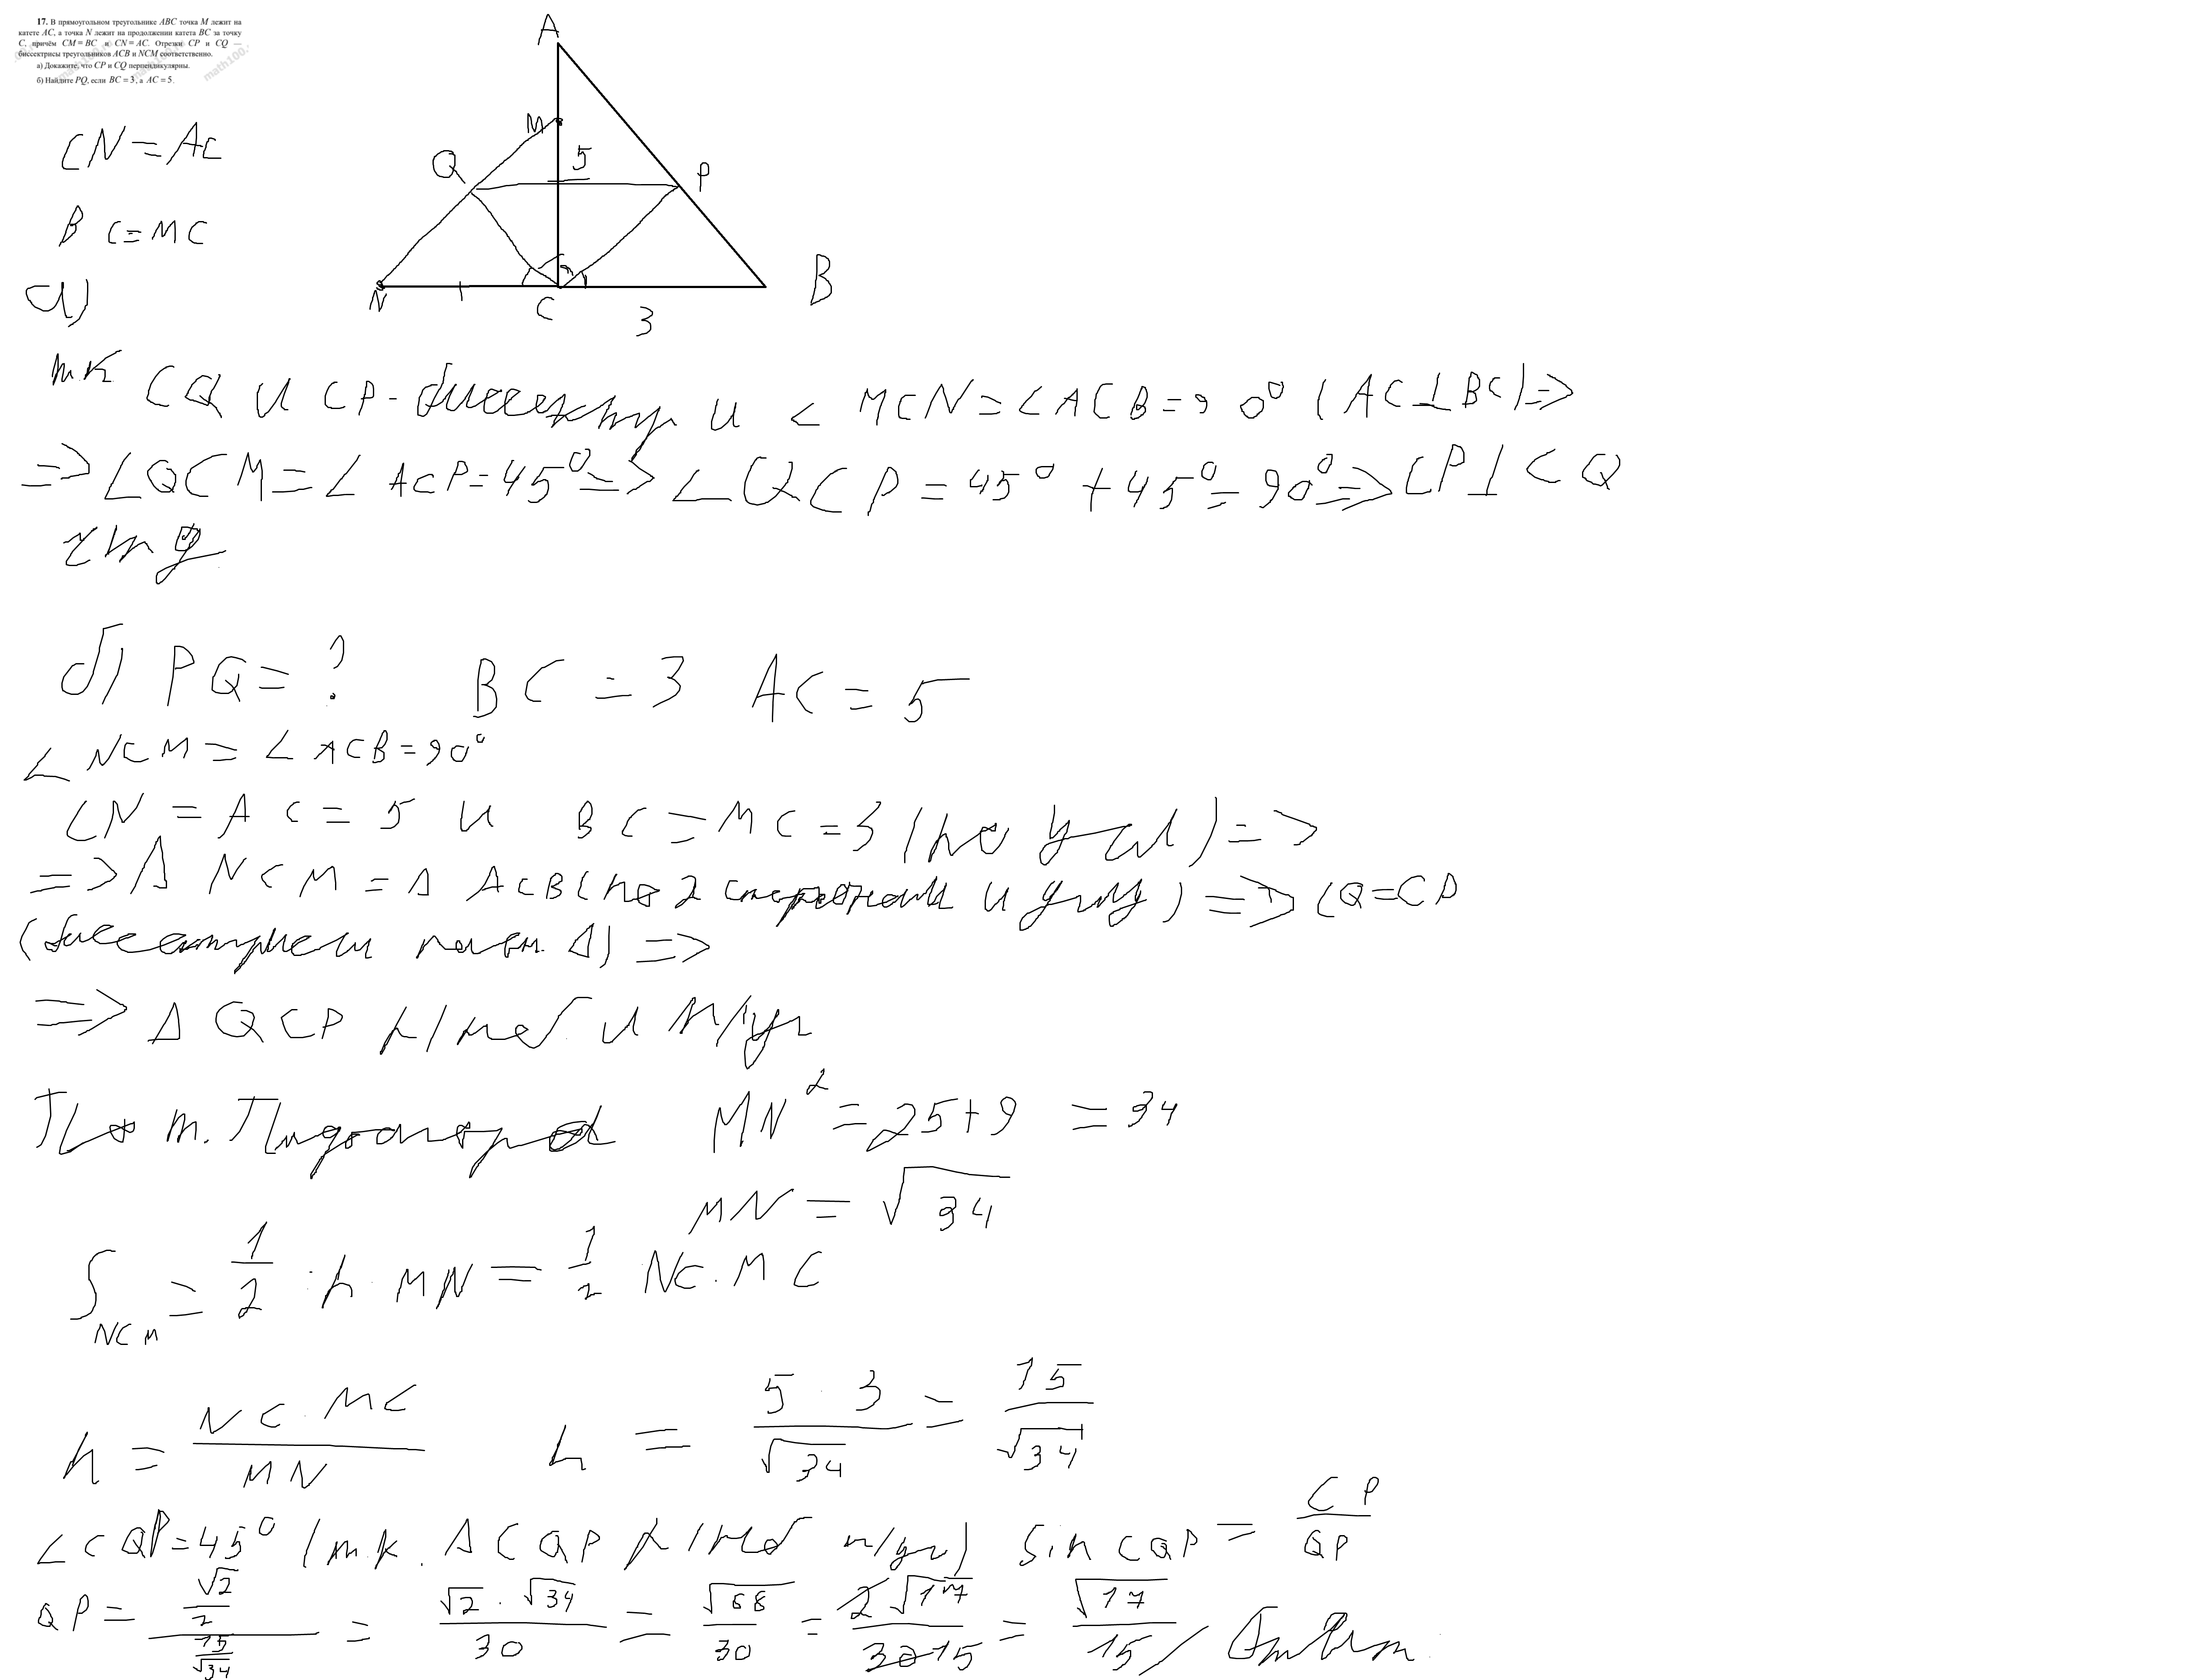 17. В прямоугольном треугольнике ABC точка M лежит на
катете AC, а точка N лежит на продолжении катета BC за точку
C, причём CM = BC и CN = AC. Отрезки CP и CQ —
биссектрисы треугольников ACB и NCM соответственно.
а) Докажите, что CP и CQ перпендикулярны.
б) Найдите PQ, если BC = 3, а AC = 5.
math100.
A
M
Q
5
P
N
C
3
B
CN = AC
BC = MC
а)
т.к CQ и CP - биссектр и < MCN = ∠ACB = 90° (AC⊥BC) =>
=> ∠QCM = ∠ACP = 45° => ∠QCP = 45° + 45° = 90° => CP⊥CQ
чтд
б) PQ = ? BC = 3 AC = 5
∠NCM = ∠ACB = 90°
CN = AC = 5 и BC = MC = 3 (по усл) =>
=> Δ NCM = Δ ACB (по 2 сторонам и углу) => CQ = CP
(биссектрисы равн. Δ) =>
=> Δ QCP р/неб и п/уг
По т. Пифагора MN² = 25 + 9 = 34
MN = √34
S NCM = 1/2 · h · MN = 1/2 NC · MC
h = NC · MC / MN h = 5 · 3 / √34 = 15 / √34
∠CQP = 45° (т.к. Δ CQP р/неб п/уг) Sin CQP = CP / QP
QP = (√2/2) / (15/√34) = √2 · √34 / 30 = √68 / 30 = 2√17 / 30 15 = √17 / 15 / Ответ